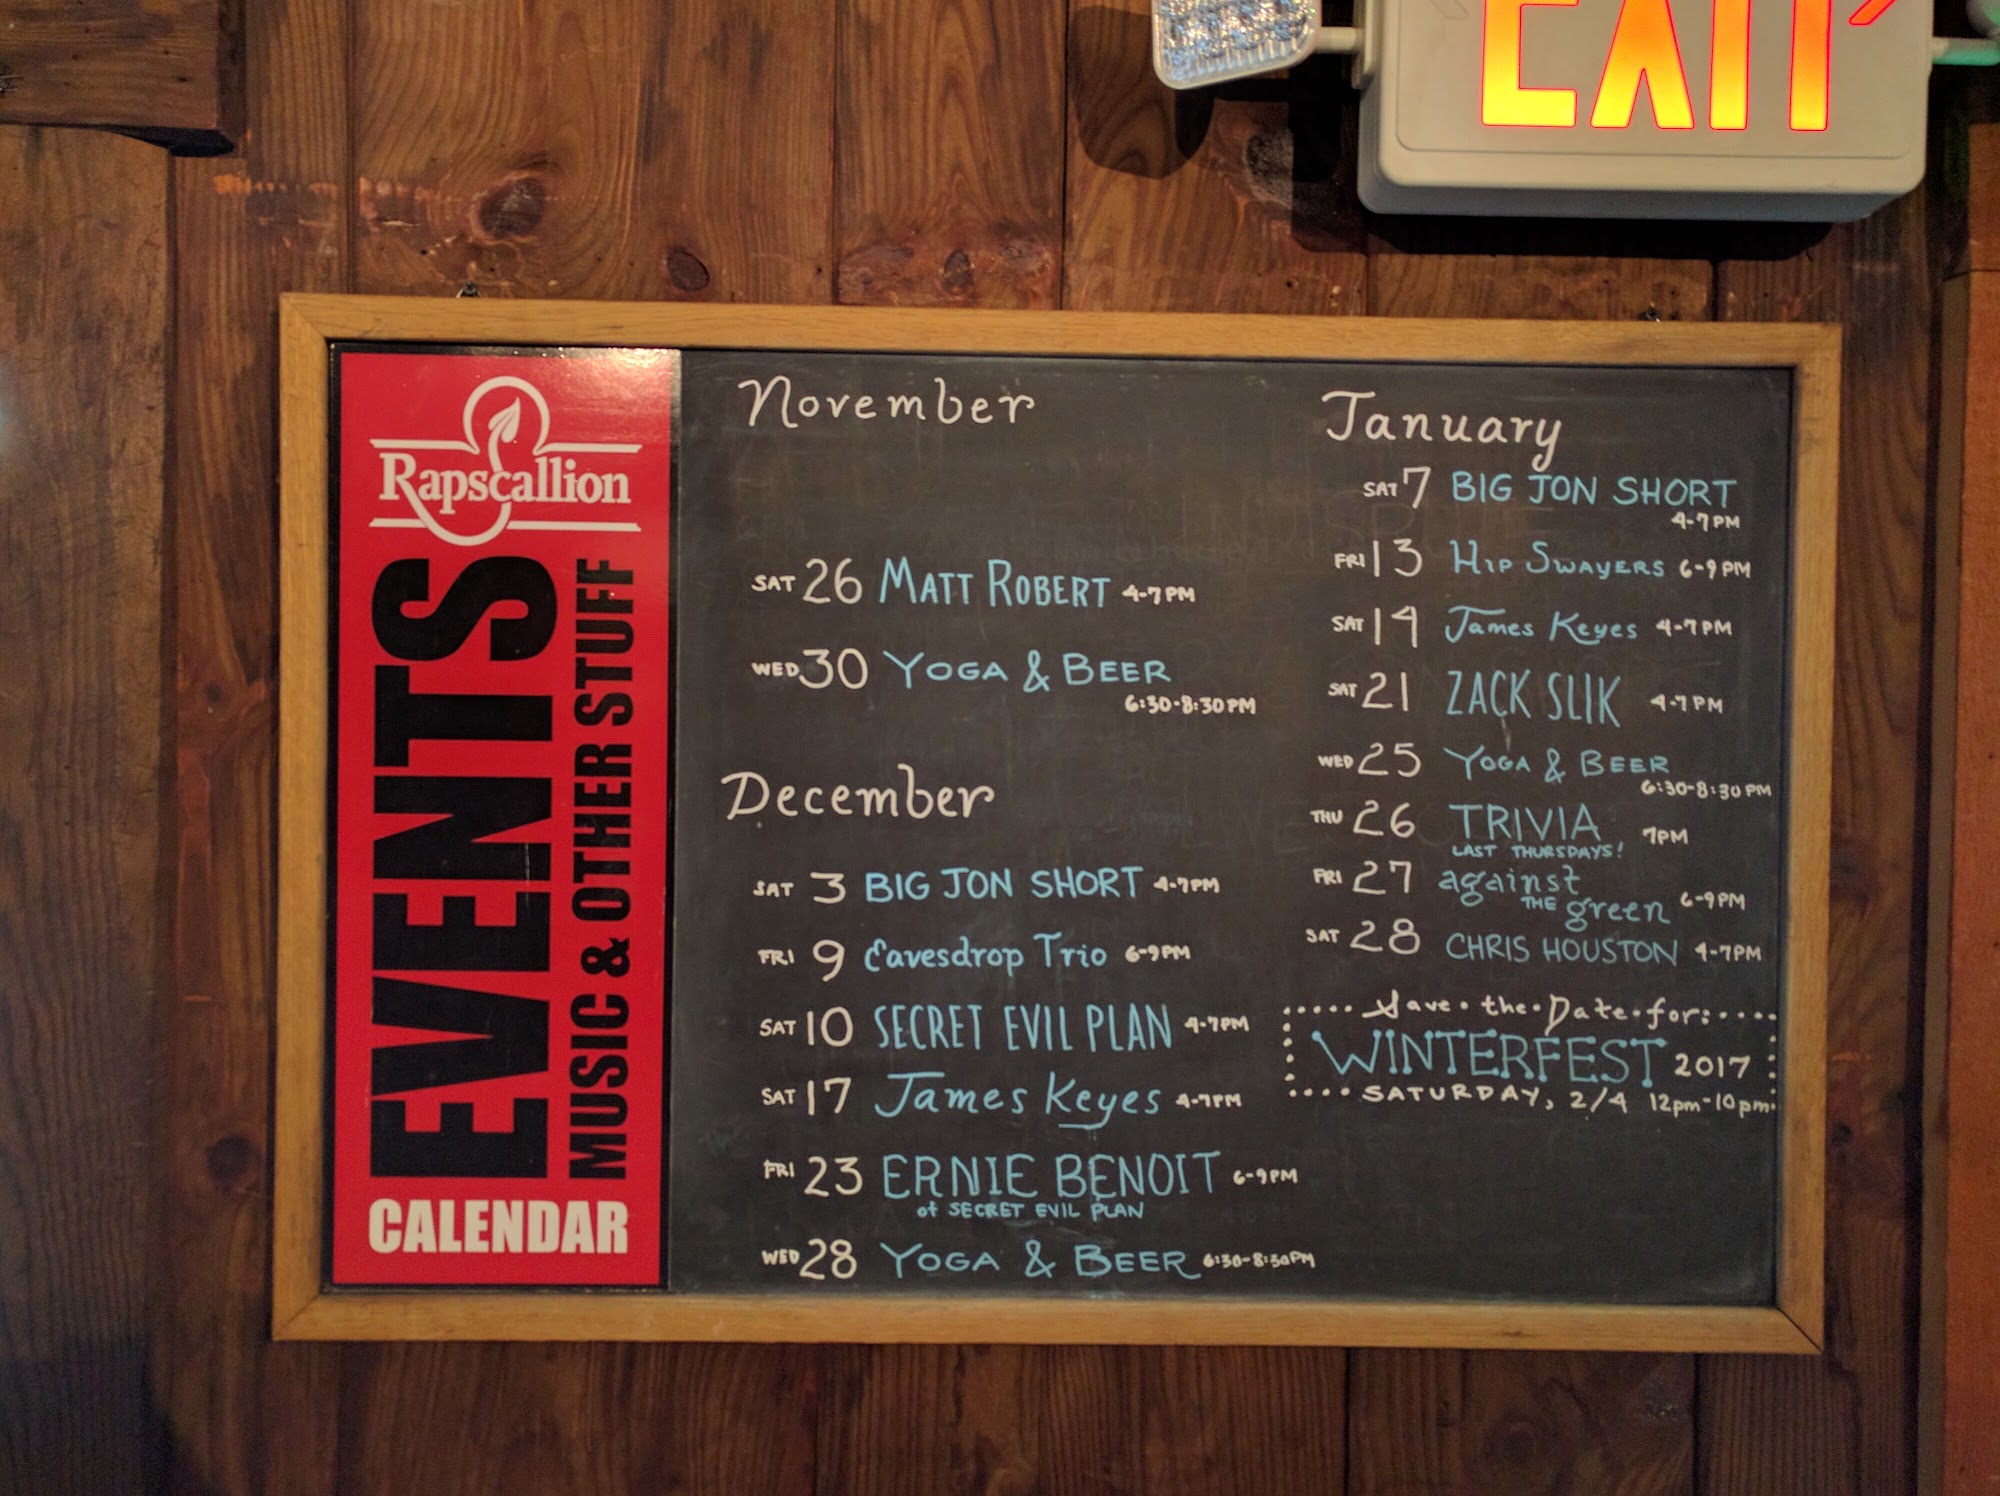 EXIT
Rapscallion
EVENTS
MUSIC & OTHER STUFF
CALENDAR
November
SAT 26 MATT ROBERT 4-7PM
WED 30 YOGA & BEER
6:30-8:30PM
December
SAT 3 BIG JON SHORT 4-7PM
FRI 9 Eavesdrop Trio 6-9PM
SAT 10 SECRET EVIL PLAN 4-7PM
SAT 17 James Keyes 4-7PM
FRI 23 ERNIE BENOIT 6-9PM
of SECRET EVIL PLAN
WED 28 YOGA & BEER 6:30-8:30PM
January
SAT 7 BIG JON SHORT
4-7PM
FRI 13 HIP SWAYERS 6-9PM
SAT 14 James Keyes 4-7PM
SAT 21 ZACK SLIK 4-7PM
WED 25 YOGA & BEER
6:30-8:30PM
THU 26 TRIVIA 7PM
LAST THURSDAYS!
FRI 27 against
THE green 6-9PM
SAT 28 CHRIS HOUSTON 4-7PM
Save • the • Date • for:
WINTERFEST 2017
SATURDAY, 2/4 12pm-10pm